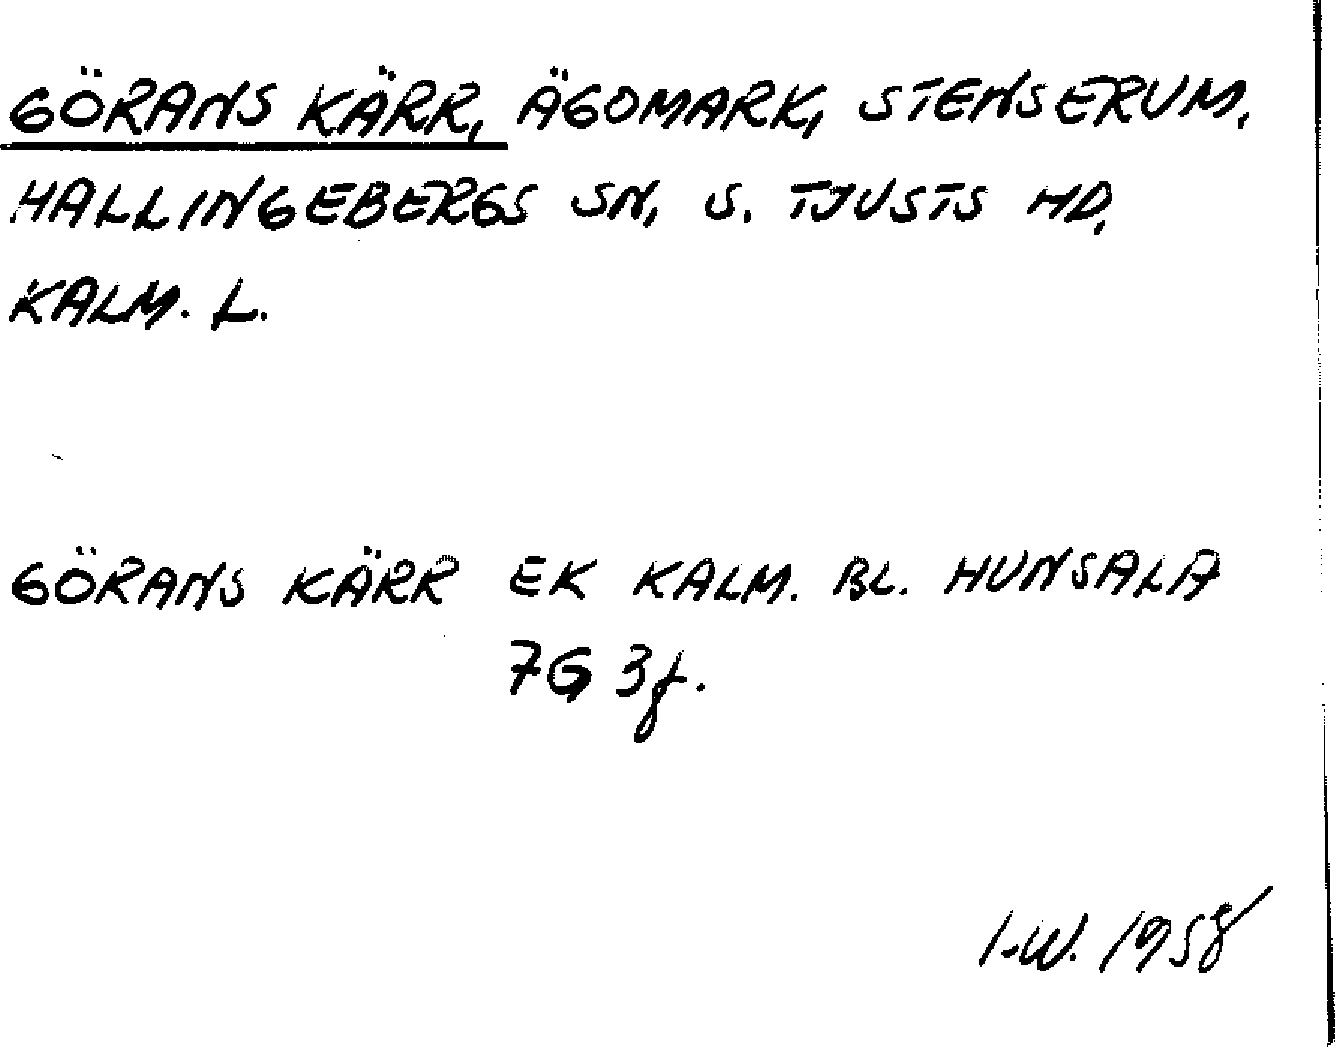 GÖRANS KÄRR, ÄGOMARK, STENSERUM,
HALLINGEBERGS SN, S. TJUSTS HD,
KALM. L.
GÖRANS KÄRR EK KALM. BL. HUNSALA
7G 3f.
I.W. 1958